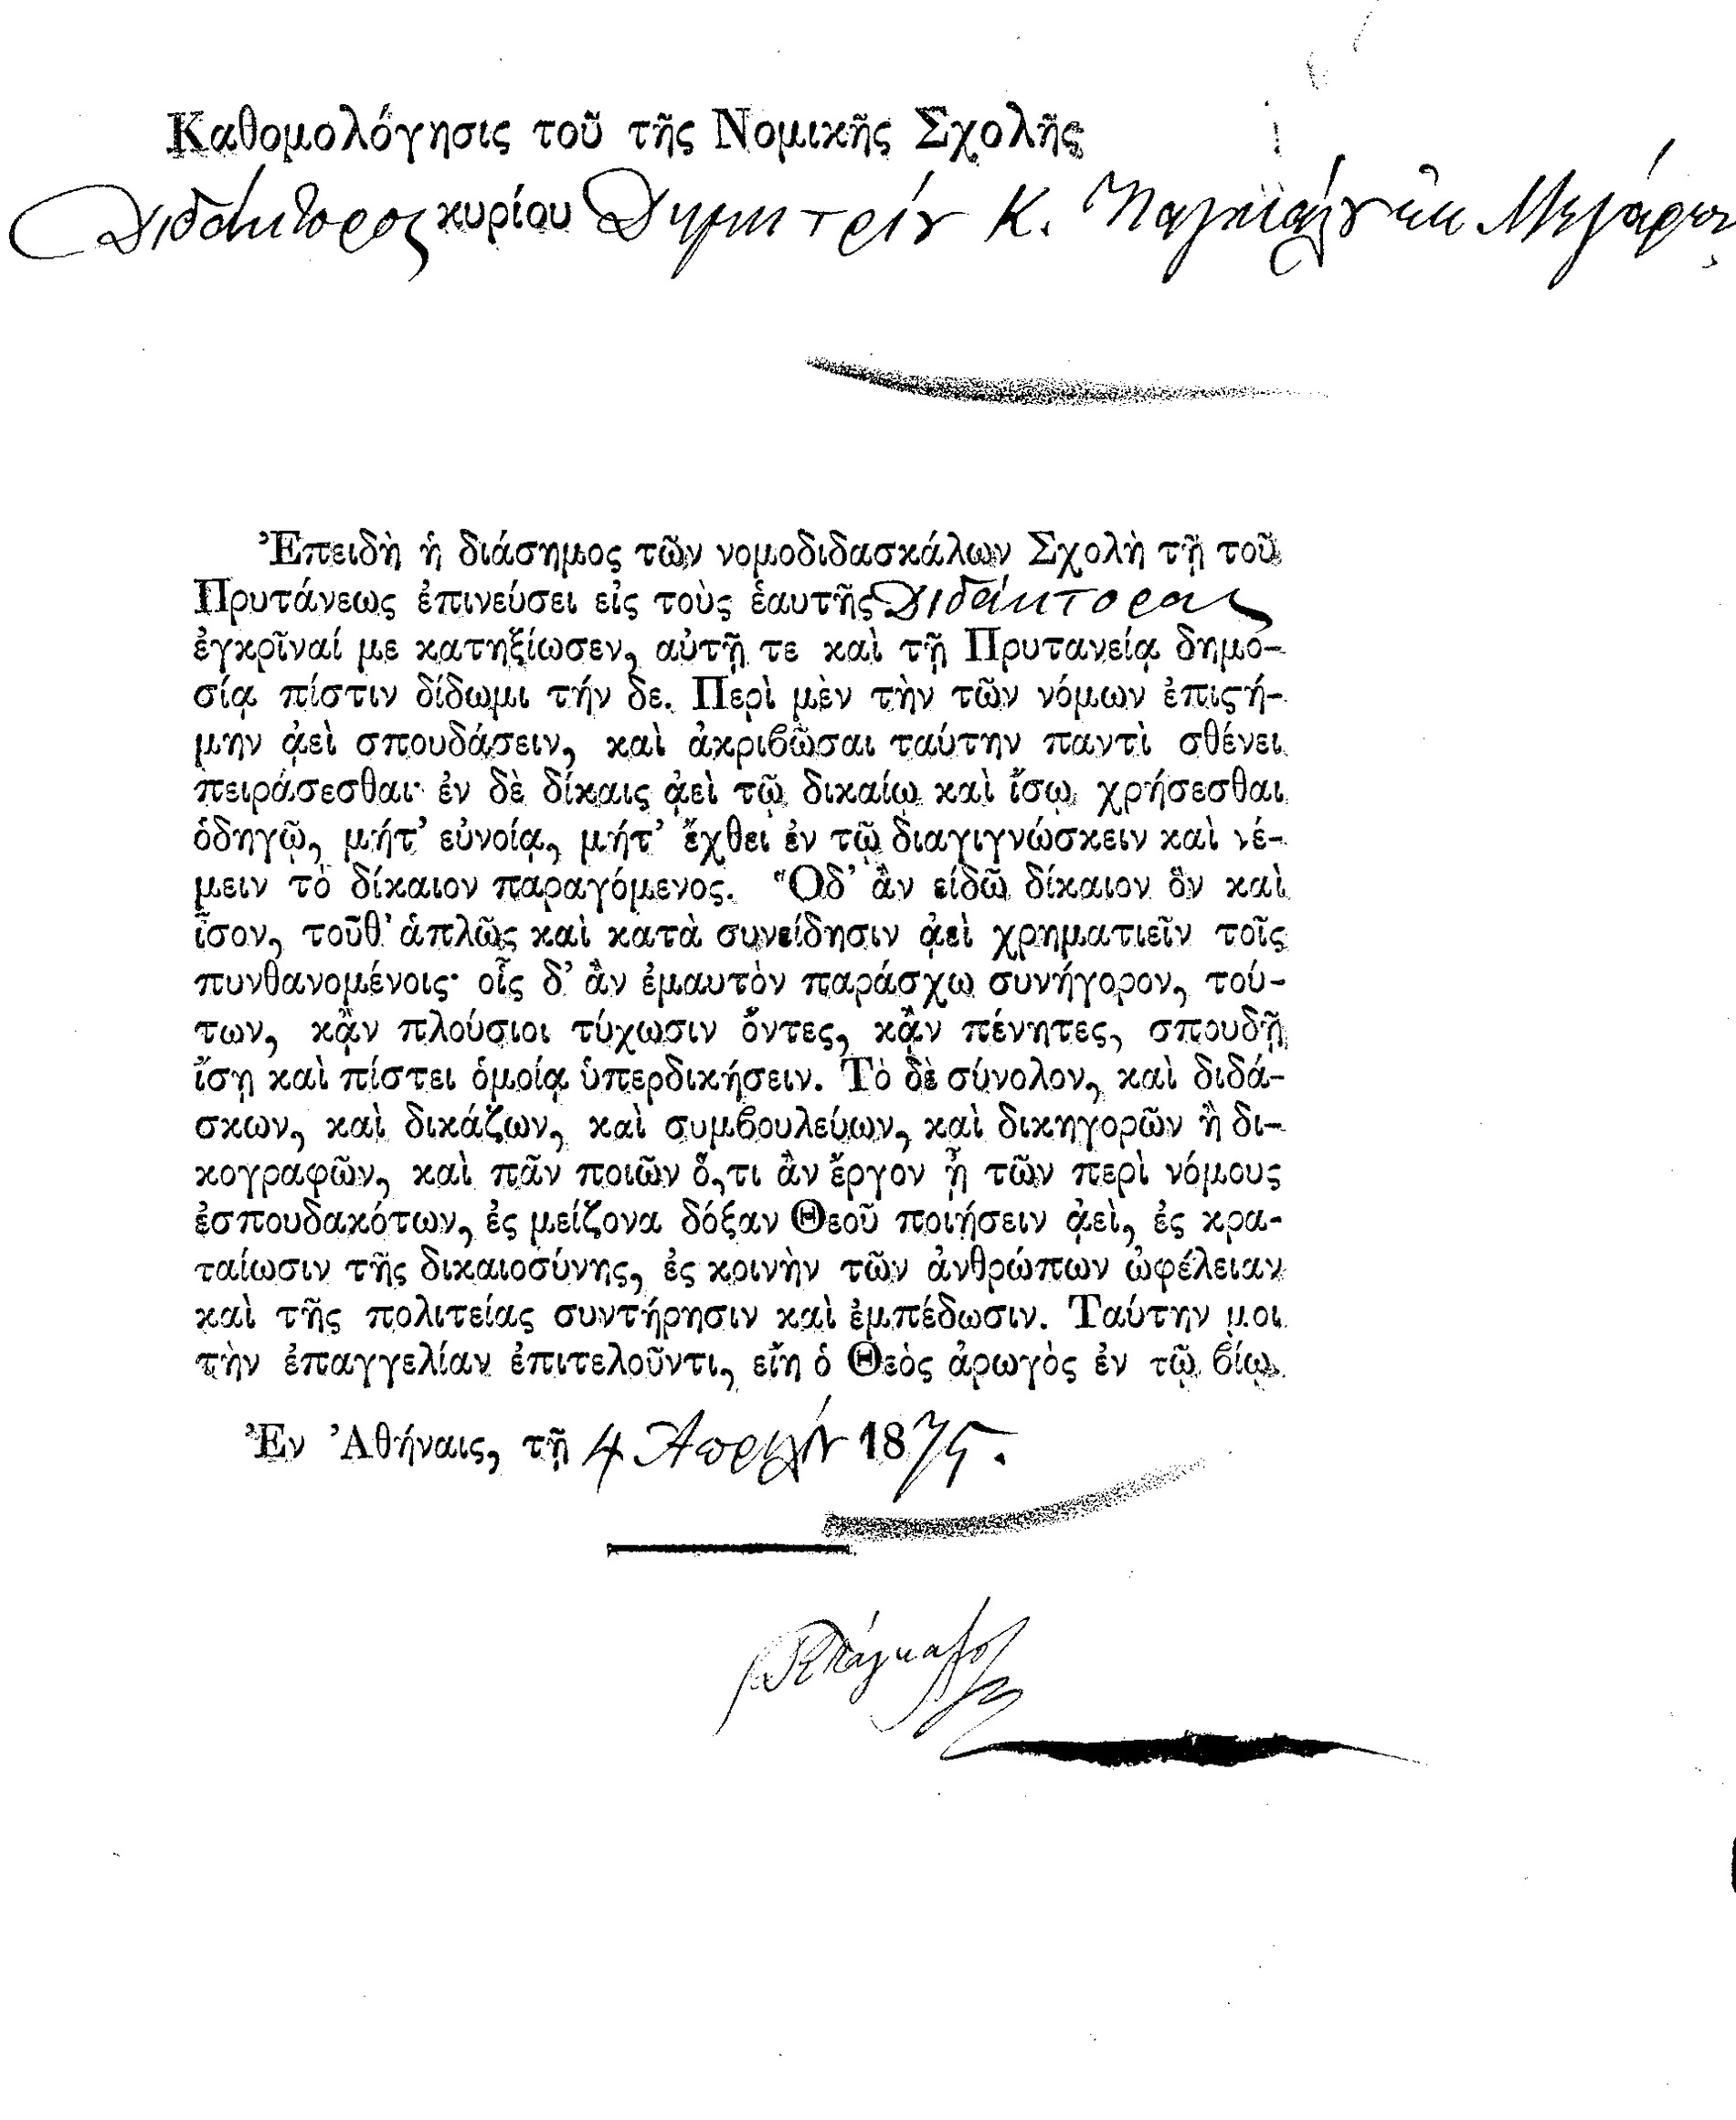 Καθομολόγησις τοῦ τῆς Νομικῆς Σχολῆς
Διδάκτορος κυρίου Δημητρίου Κ. ἐκ Μεγάρων
Ἐπειδὴ ἡ διάσημος τῶν νομοδιδασκάλων Σχολὴ τῇ τοῦ
Πρυτάνεως ἐπινεύσει εἰς τοὺς ἑαυτῆς Διδάκτορας
ἐγκρῖναί με κατηξίωσεν, αὐτῇ τε καὶ τῇ Πρυτανείᾳ δημο-
σίᾳ πίστιν δίδωμι τήν δε. Περὶ μὲν τὴν τῶν νόμων ἐπιςή-
μην ᾀεὶ σπουδάσειν, καὶ ἀκριβῶσαι ταύτην παντὶ σθένει
πειράσεσθαι· ἐν δὲ δίκαις ᾀεὶ τῷ δικαίῳ καὶ ἴσῳ χρήσεσθαι
ὁδηγῷ, μήτ’ εὐνοίᾳ, μήτ’ ἔχθει ἐν τῷ διαγιγνώσκειν καὶ νέ-
μειν τὸ δίκαιον παραγόμενος. Ὅδ’ ἂν εἰδῶ δίκαιον ὂν καὶ
ἶσον, τοῦθ’ ἁπλῶς καὶ κατὰ συνείδησιν ᾀεὶ χρηματιεῖν τοῖς
πυνθανομένοις· οἷς δ’ ἂν ἐμαυτὸν παράσχω συνήγορον, τού-
των, κᾂν πλούσιοι τύχωσιν ὄντες, κᾂν πένητες, σπουδῇ
ἴσῃ καὶ πίστει ὁμοίᾳ ὑπερδικήσειν. Τὸ δὲ σύνολον, καὶ διδά-
σκων, καὶ δικάζων, καὶ συμβουλεύων, καὶ δικηγορῶν ἢ δι-
κογραφῶν, καὶ πᾶν ποιῶν ὅ,τι ἂν ἔργον ᾖ τῶν περὶ νόμους
ἐσπουδακότων, ἐς μείζονα δόξαν Θεοῦ ποιήσειν ᾀεὶ, ἐς κρα-
ταίωσιν τῆς δικαιοσύνης, ἐς κοινὴν τῶν ἀνθρώπων ὠφέλειαν
καὶ τῆς πολιτείας συντήρησιν καὶ ἐμπέδωσιν. Ταύτην μοι
τὴν ἐπαγγελίαν ἐπιτελοῦντι, εἴη ὁ Θεὸς ἀρωγὸς ἐν τῷ βίῳ.
Ἐν Ἀθήναις, τῇ 4 Απριλίου 1875.